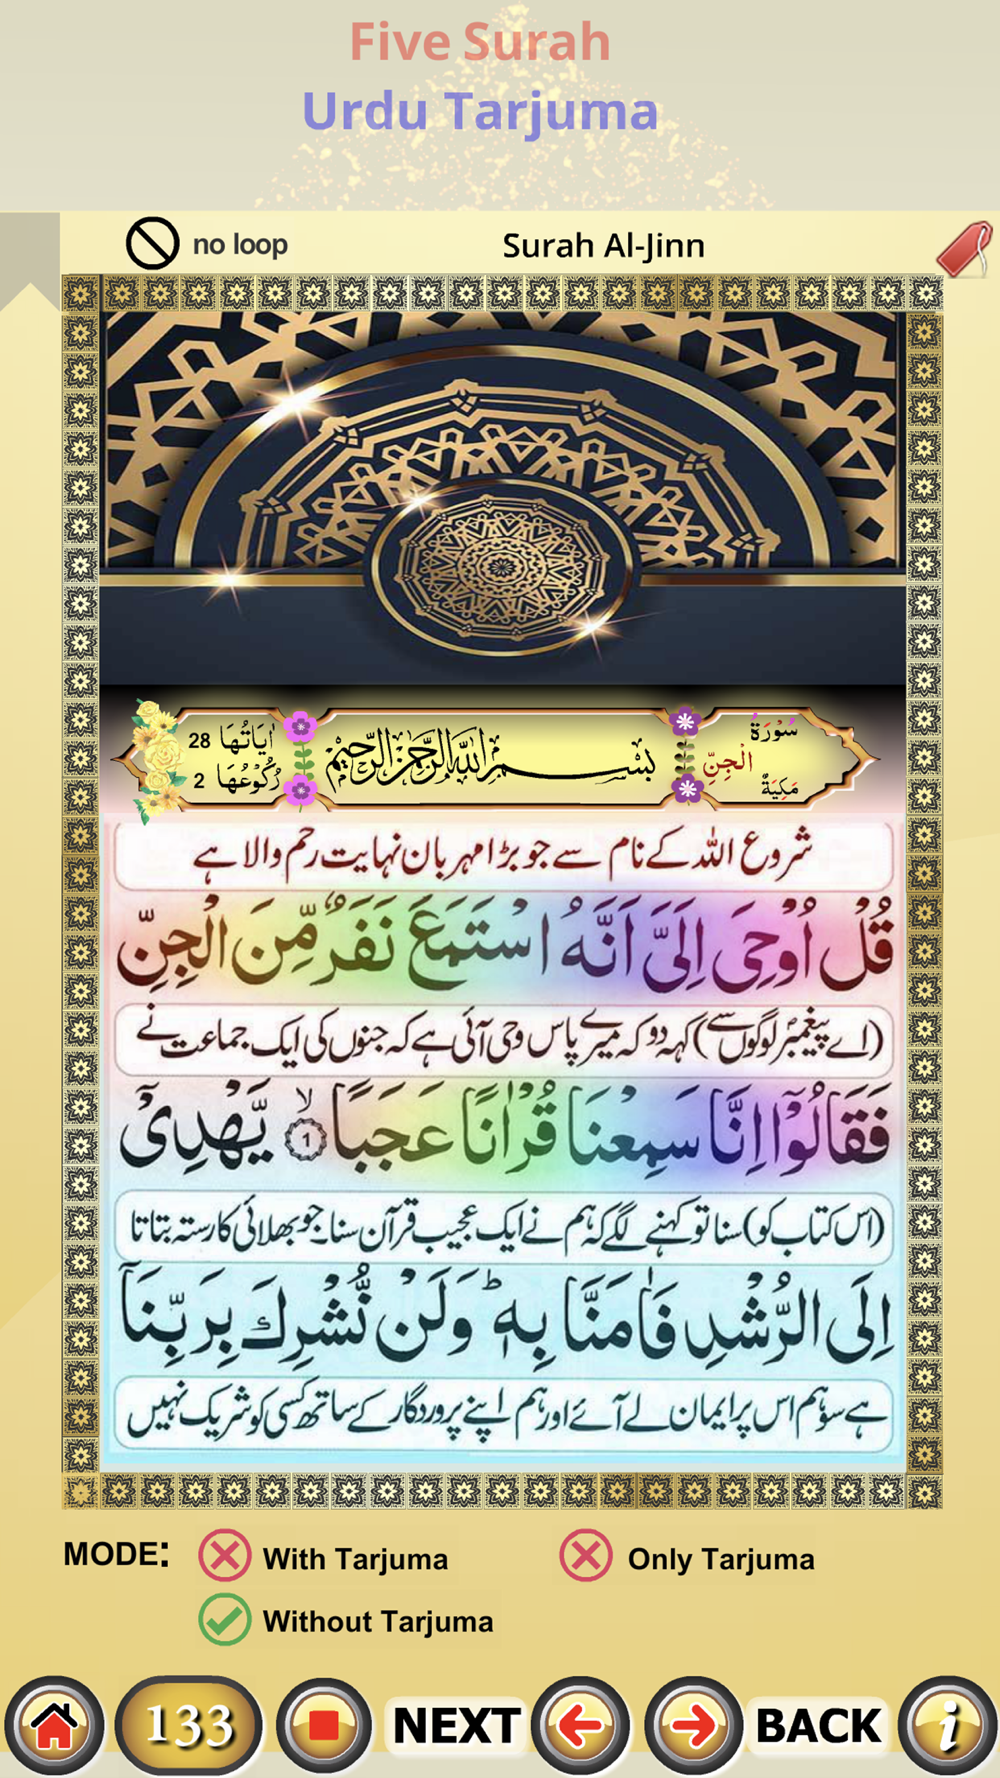 Five Surah
Urdu Tarjuma
no loop
Surah Al-Jinn
سُوْرَةُ
الْجِنِّ
مَكِيَةٌ
بسم الله الرحمن الرحيم
اٰيَاتُهَا 28
رُكُوْعُهَا 2
شروع اللہ کے نام سے جو بڑا مہربان نہایت رحم والا ہے
قُلْ اُوْحِیَ اِلَیَّ اَنَّهُ اسْتَمَعَ نَفَرٌ مِّنَ الْجِنِّ
(اے پیغمبرؐ لوگوں سے) کہہ دو کہ میرے پاس وحی آئی ہے کہ جنوں کی ایک جماعت نے
فَقَالُوْۤا اِنَّا سَمِعْنَا قُرْاٰنًا عَجَبًا ۙ 1 يَّهْدِیْۤ
(اس کتاب کو) سنا تو کہنے لگے کہ ہم نے ایک عجیب قرآن سنا۔ جو بھلائی کا رستہ بتاتا
اِلَى الرُّشْدِ فَاٰمَنَّا بِهٖ ؕ وَلَنْ نُّشْرِكَ بِرَبِّنَاۤ
ہے سو ہم اس پر ایمان لے آئے اور ہم اپنے پروردگار کے ساتھ کسی کو شریک نہیں
MODE:
With Tarjuma
Only Tarjuma
Without Tarjuma
133
NEXT
BACK
i